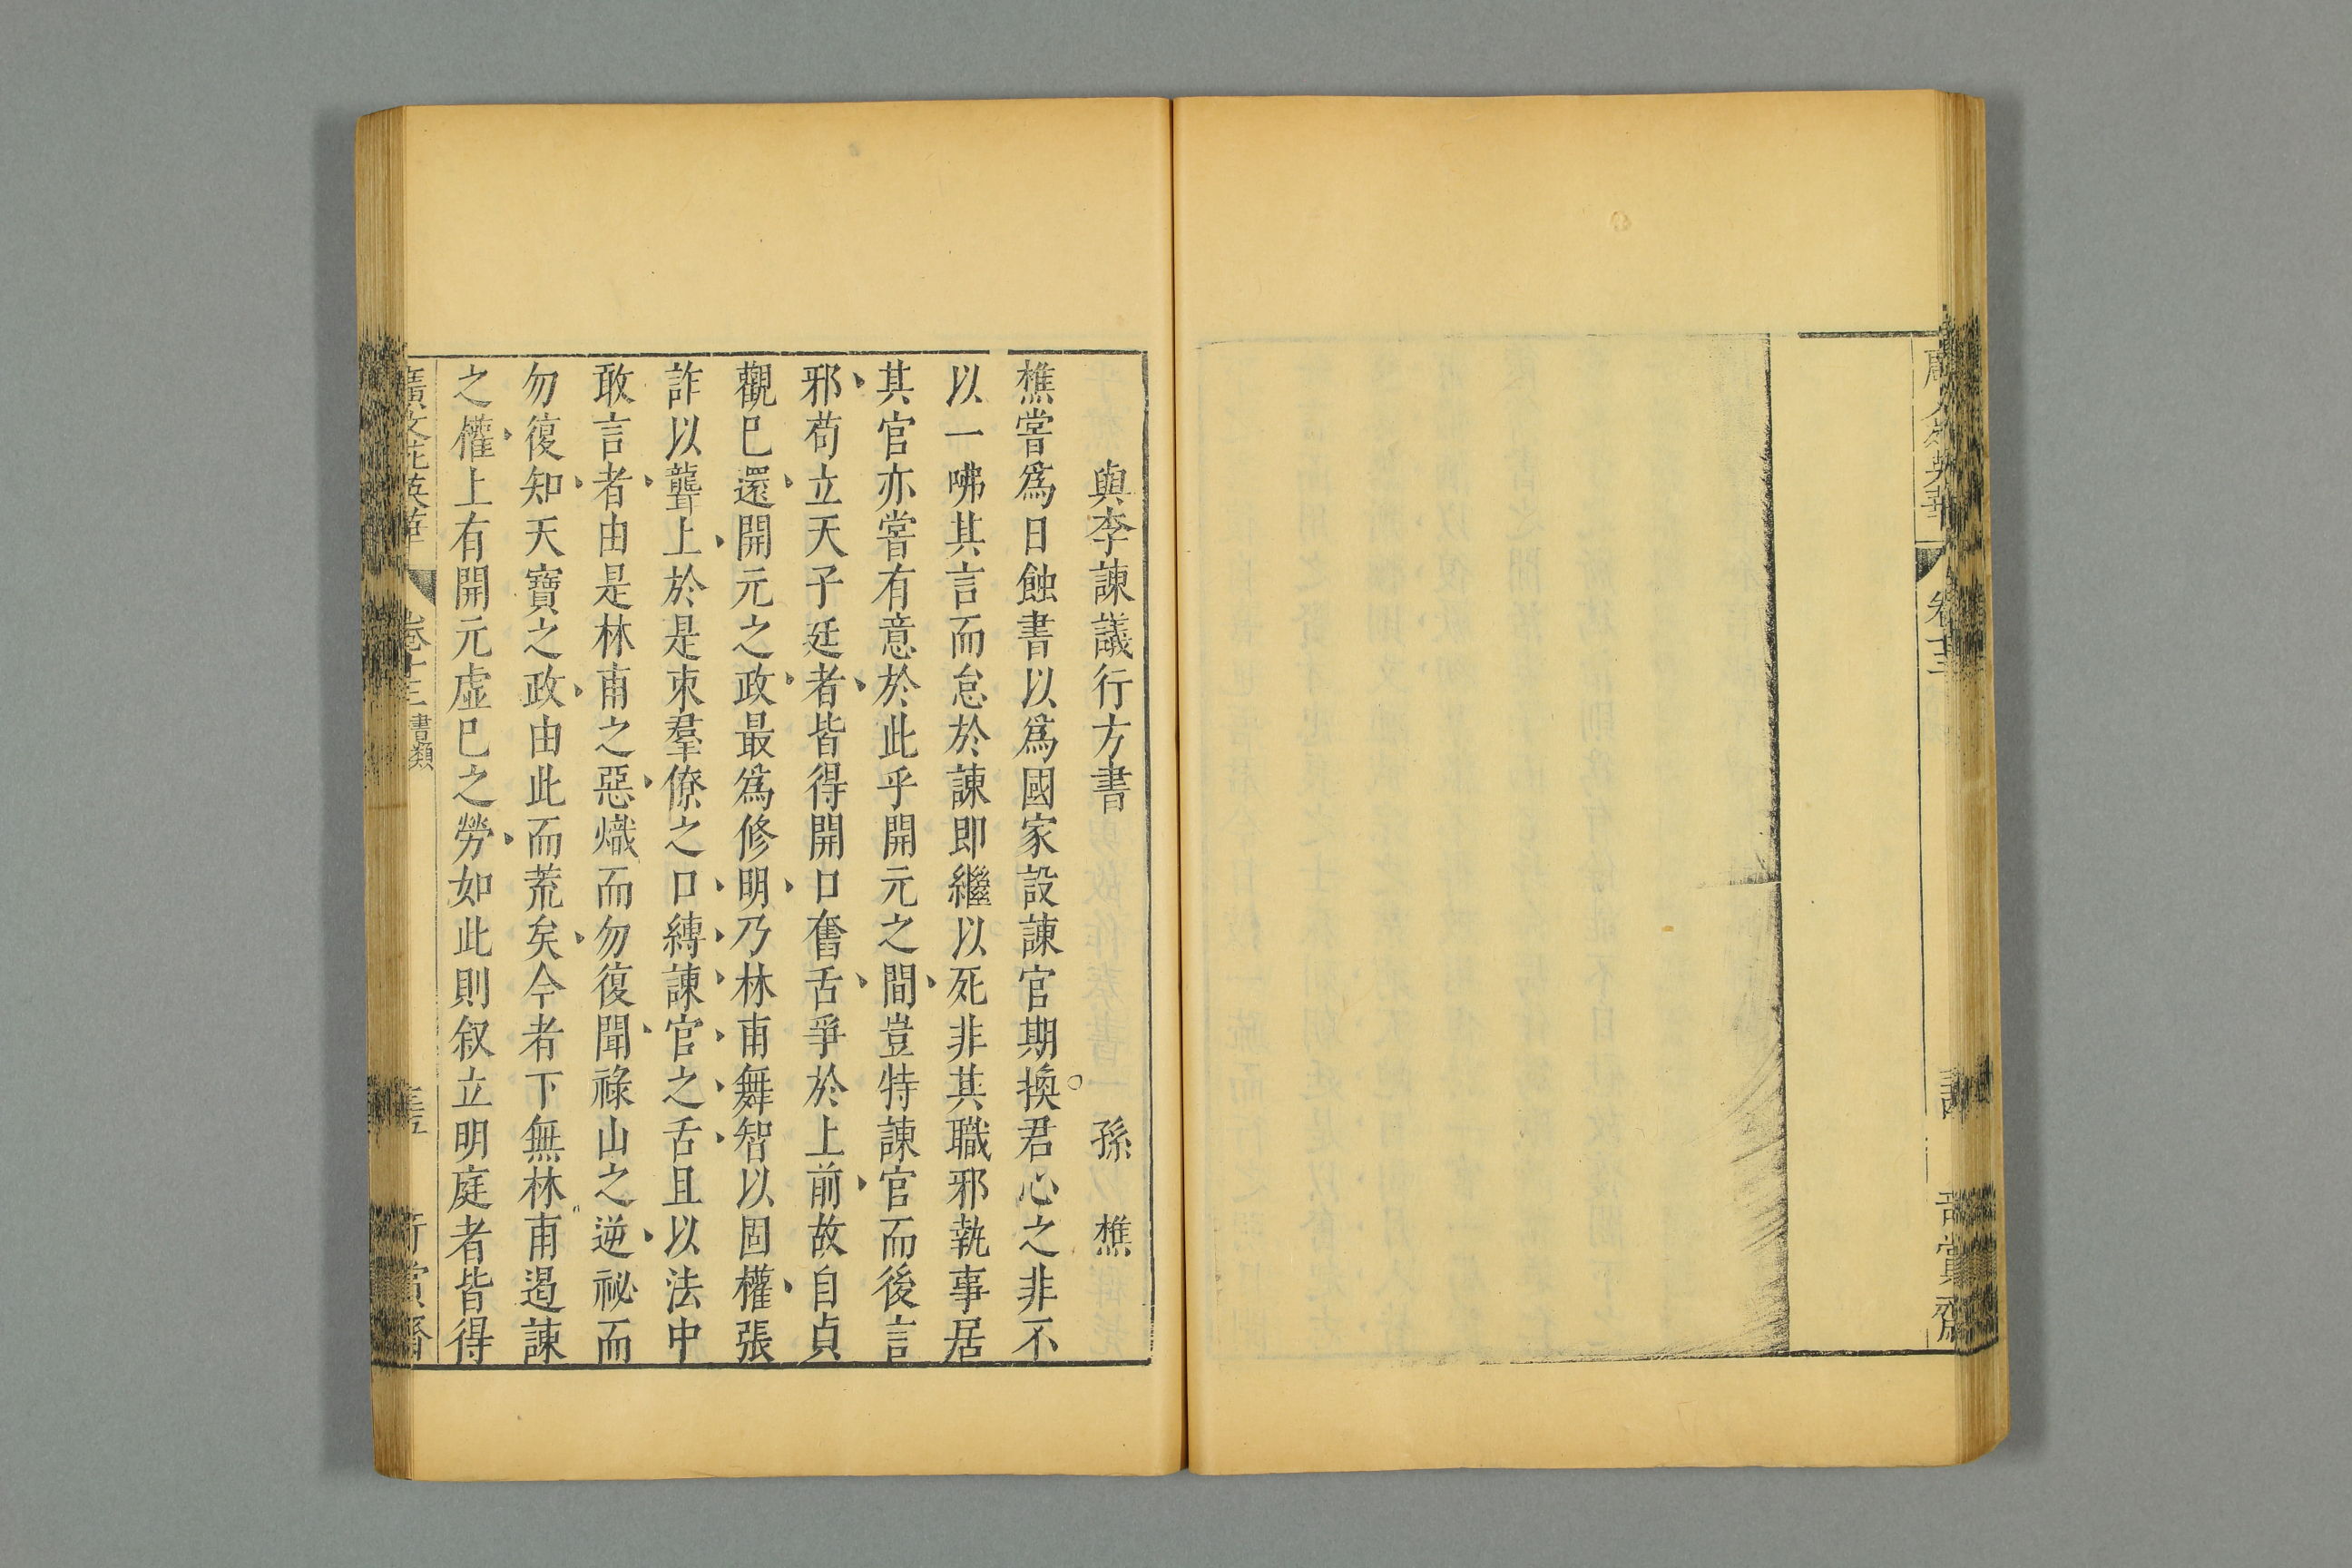 廣文苑英華 卷十三 奇賞齋
與李諫議行方書 孫樵
樵嘗爲日蝕書以爲國家設諫官期換君心之非不
以一咈其言而怠於諫即繼以死非其職邪執事居
其官亦嘗有意於此乎開元之間豈特諫官而後言
邪苟立天子廷者皆得開口奮舌爭於上前故自貞
觀巳還開元之政最爲修明乃林甫舞智以固權張
詐以聾上於是束羣僚之口縛諫官之舌且以法中
敢言者由是林甫之惡熾而勿復聞祿山之逆祕而
勿復知天寶之政由此而荒矣今者下無林甫遏諫
之權上有開元虛巳之勞如此則叙立明庭者皆得
廣文苑英華 卷十三 書類 奇賞齋